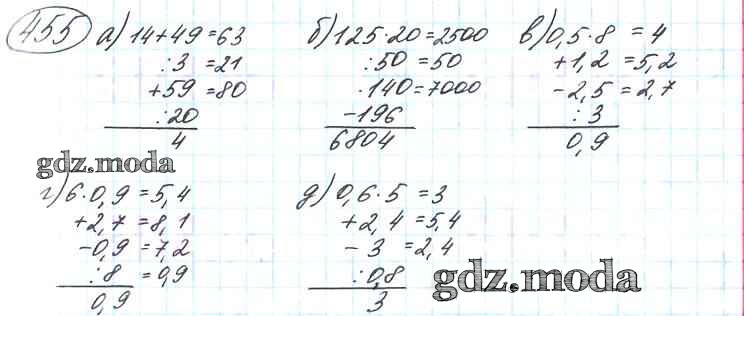 455 а) 14+49=63
:3 =21
+59=80
:20
4
б) 125·20=2500
:50=50
·140=7000
-196
6804
в) 0,5·8 =4
+1,2=5,2
-2,5=2,7
:3
0,9
gdz.moda
г) 6·0,9=5,4
+2,7=8,1
-0,9=7,2
:8 =0,9
0,9
д) 0,6·5 =3
+2,4=5,4
-3 =2,4
:0,8
3
gdz.moda